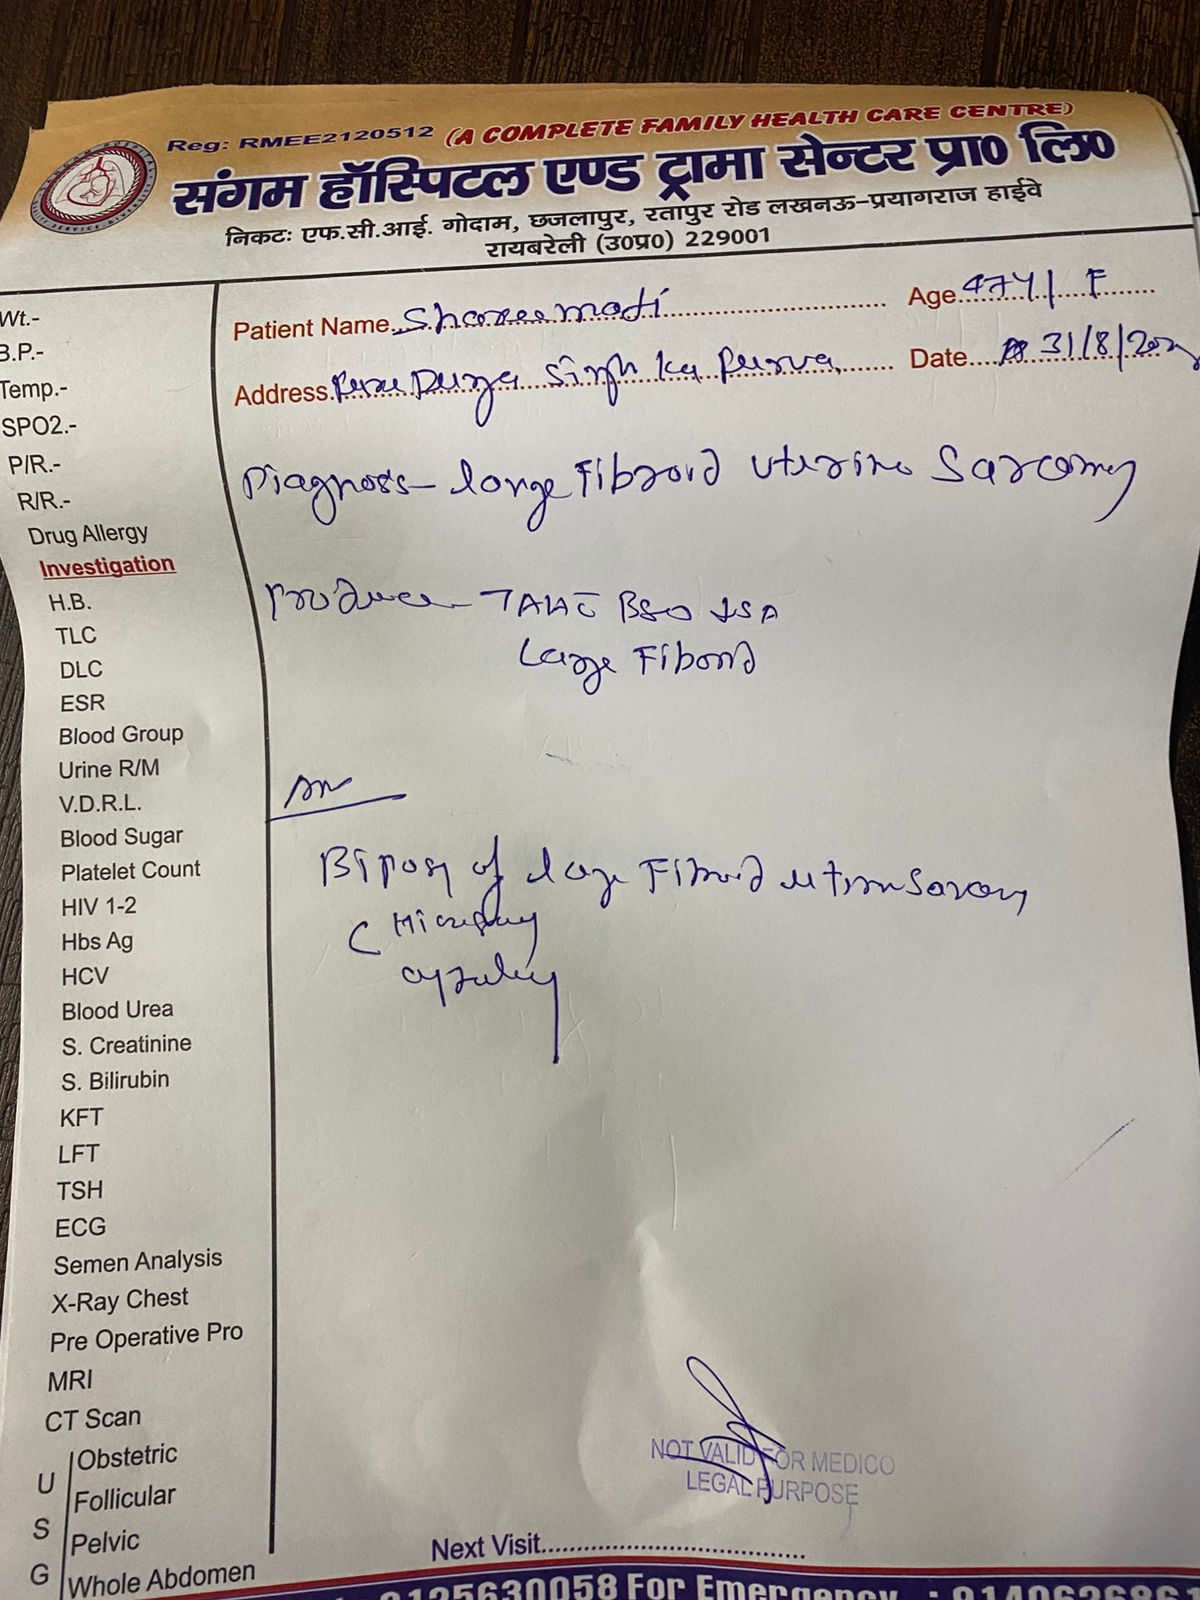 Reg: RMEE2120512 (A COMPLETE FAMILY HEALTH CARE CENTRE)
संगम हॉस्पिटल एण्ड ट्रामा सेन्टर प्रा० लि०
निकटः एफ.सी.आई. गोदाम, छजलापुर, रतापुर रोड लखनऊ-प्रयागराज हाईवे
रायबरेली (उ0प्र0) 229001
Patient Name Shareemati Age 47Y/ F
Address Durga Singh ka Purva Date 31/8/
Diagnosis- large Fibroid uterine Sarcoma
TAH C BSO
Large Fibroid
of large Fibroid
Wt.-
B.P.-
Temp.-
SPO2.-
P/R.-
R/R.-
Drug Allergy
Investigation
H.B.
TLC
DLC
ESR
Blood Group
Urine R/M
V.D.R.L.
Blood Sugar
Platelet Count
HIV 1-2
Hbs Ag
HCV
Blood Urea
S. Creatinine
S. Bilirubin
KFT
LFT
TSH
ECG
Semen Analysis
X-Ray Chest
Pre Operative Pro
MRI
CT Scan
USG
Obstetric
Follicular
Pelvic
Whole Abdomen
NOT VALID FOR MEDICO
LEGAL PURPOSE
Next Visit
9125630058 For Emergency